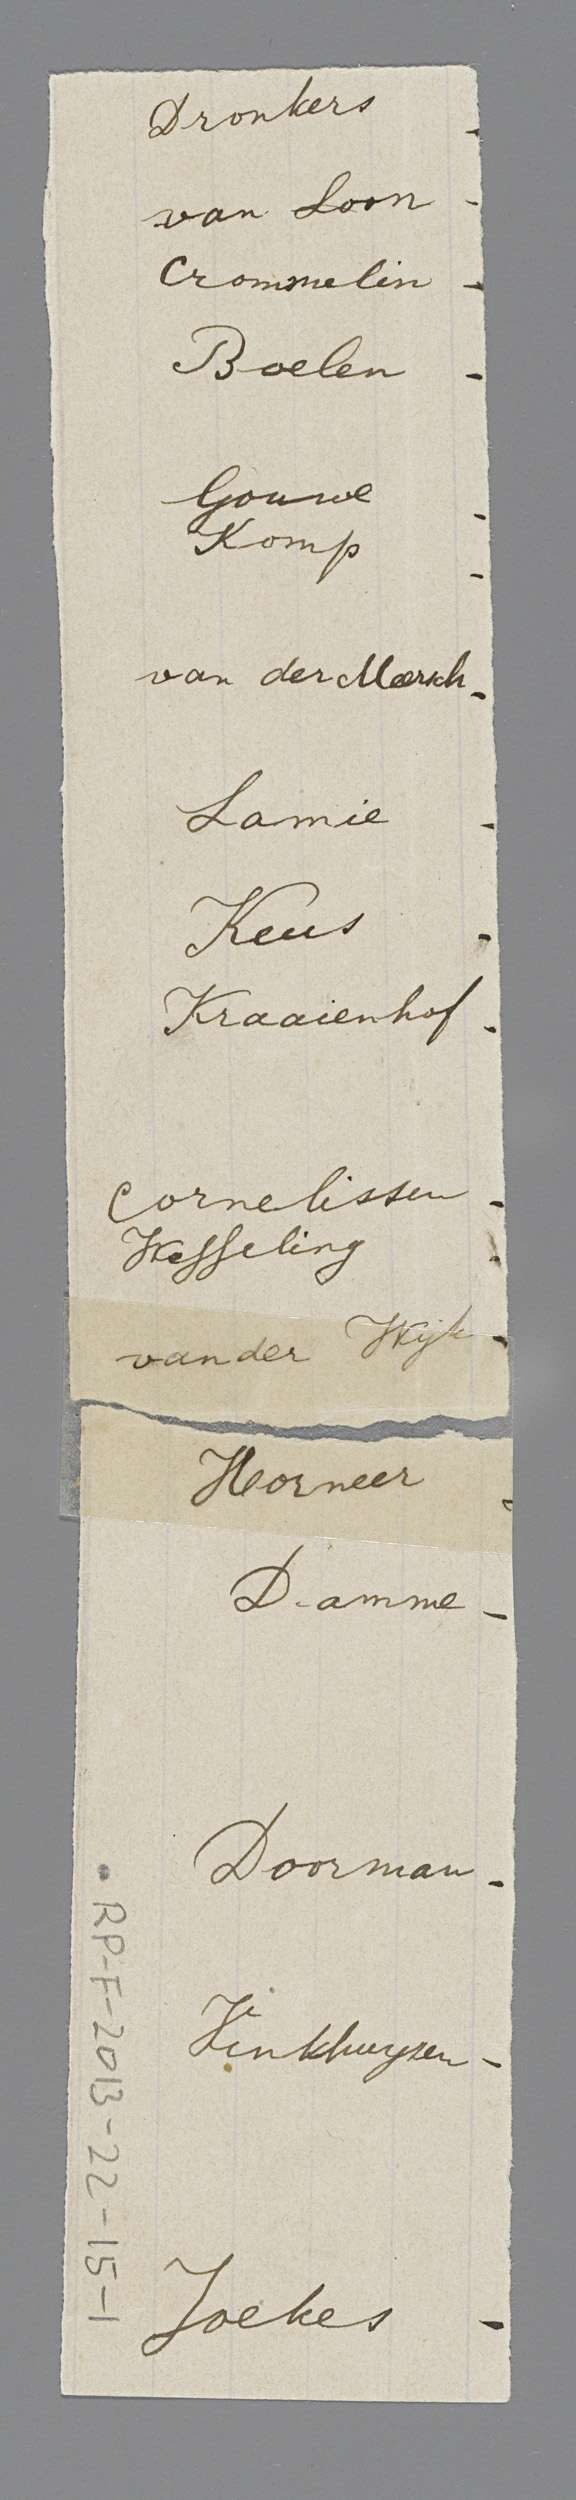 Dronkers -
van Loon -
Crommelin -
Boelen -
Gouwe -
Komp -
van der Mersch -
Lamie -
Keus -
Kraaienhof -
Cornelissen -
Wesseling -
van der Wijk -
Horneer -
Damme -
Doorman -
Vinkhuyzen -
Joekes -
RP-F-2013-22-15-1